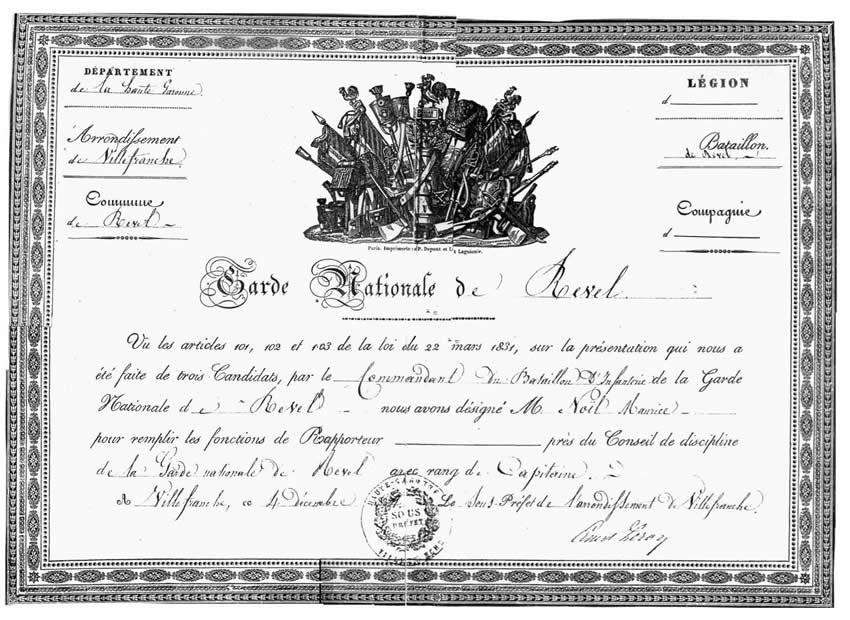 DÉPARTEMENT
de la haute Garonne
Arrondissement
de Villefranche
Commune
de Revel
LÉGION
d
Bataillon
de Revel
Compagnie
d
Paris. Imprimerie de P. Dupont et Laguionie.
Garde Nationale de Revel
Vu les articles 101, 102 et 103 de la loi du 22 mars 1831, sur la présentation qui nous a
été faite de trois Candidats, par le Commandant du Bataillon d'Infanterie de la Garde
Nationale de Revel nous avons désigné M. Noël Maurice
pour remplir les fonctions de Rapporteur près du Conseil de discipline
de la Garde nationale de Revel avec rang de Capitaine.
A Villefranche, ce 4 Décembre Le Sous-Préfet de l'arrondissement de Villefranche.
HAUTE-GARONNE
SOUS
PRÉFET